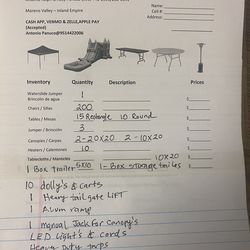 Moreno Valley - Inland Empire
Name:
Cell #
Address:
CASH APP, VENMO & ZELLE, APPLE PAY
(Accepted)
Antonio Panuco@9514422006
Inventory Quantity Description Prices
Waterslide Jumper
Brincolin de agua 1
Chairs / Sillas 200
Tables / Mesas 15 Rectangle 10 Round
Jumper / Brincolin 3
Canopies / Carpas 2-20x20 2-10x20
Heaters / Calentones 10
Tablecloths / Manteles 10x20
1 Box trailer 5x10 1-Box storage trailer
10 dolly's & carts
1 Heavy tail gate LIFT
1 Alum ramp
1 manual Jack for Canopy's
LED Lights & cords
Heavy Duty tarps